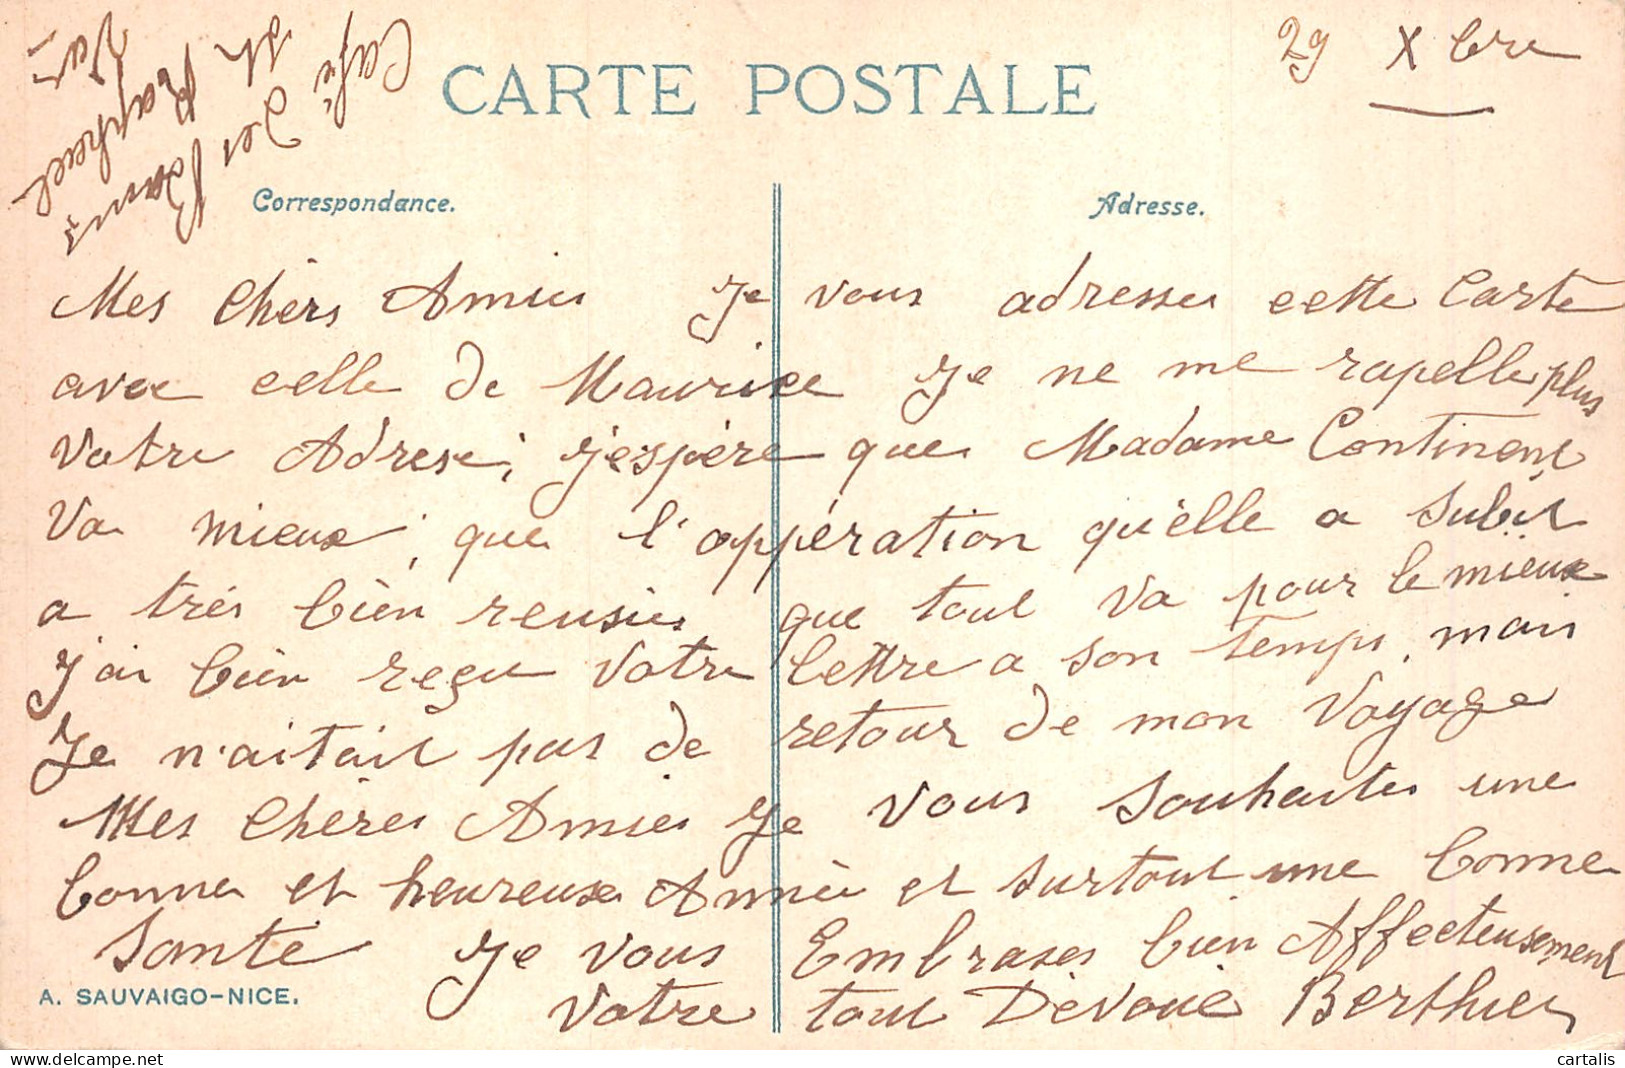 29 Xbre
CARTE POSTALE
Café
des Bains
St Raphael
Var
Correspondance.
Adresse.
Mes Chèrs Amies Je vous adresses cette Carte
avec celle de Maurice Je ne me rapelle plus
Votre Adrese, j'espère que Madame Continent
Va mieux, que l'oppération qu'èlle a Subit
a très bièn reusies que tout va pour le mieux
j'ai bièn reçu Votre lettre a son temps, mais
Je n'aitait pas de retour de mon Voyage
Mes Chères Amies Je Vous Souhaites une
bonne et heureuse Année et surtout une bonne
Santé Je vous Embrases bien Affecteusement
Votre tout Dèvoué Berthier
A. SAUVAIGO-NICE.
cartalis